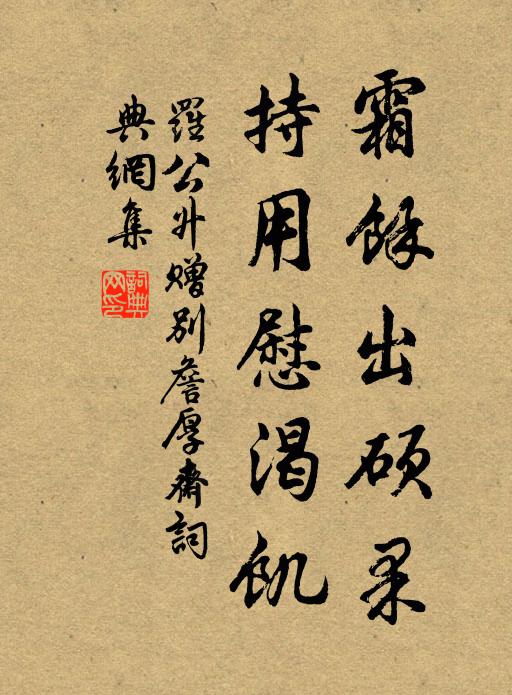 霜餘出碩果
持用慰渴飢
羅公升贈別詹厚齋詞
典網集
詞典
网印